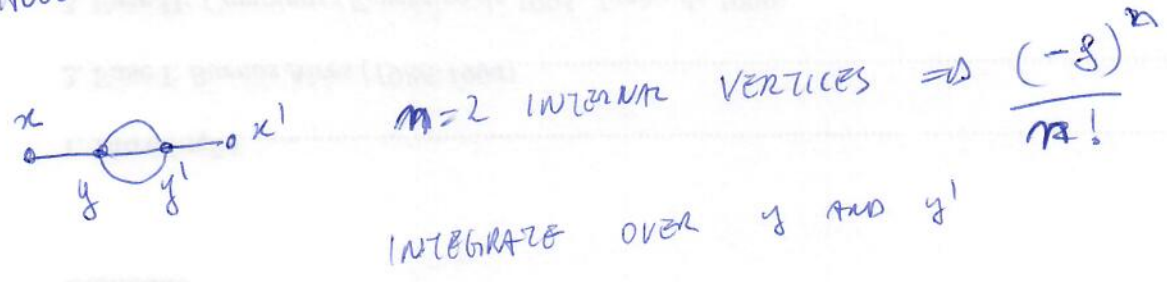 n=2 INTERNAL VERTICES ⇒ (-g)^n / n!
x x'
y y'
INTEGRATE OVER y AND y'